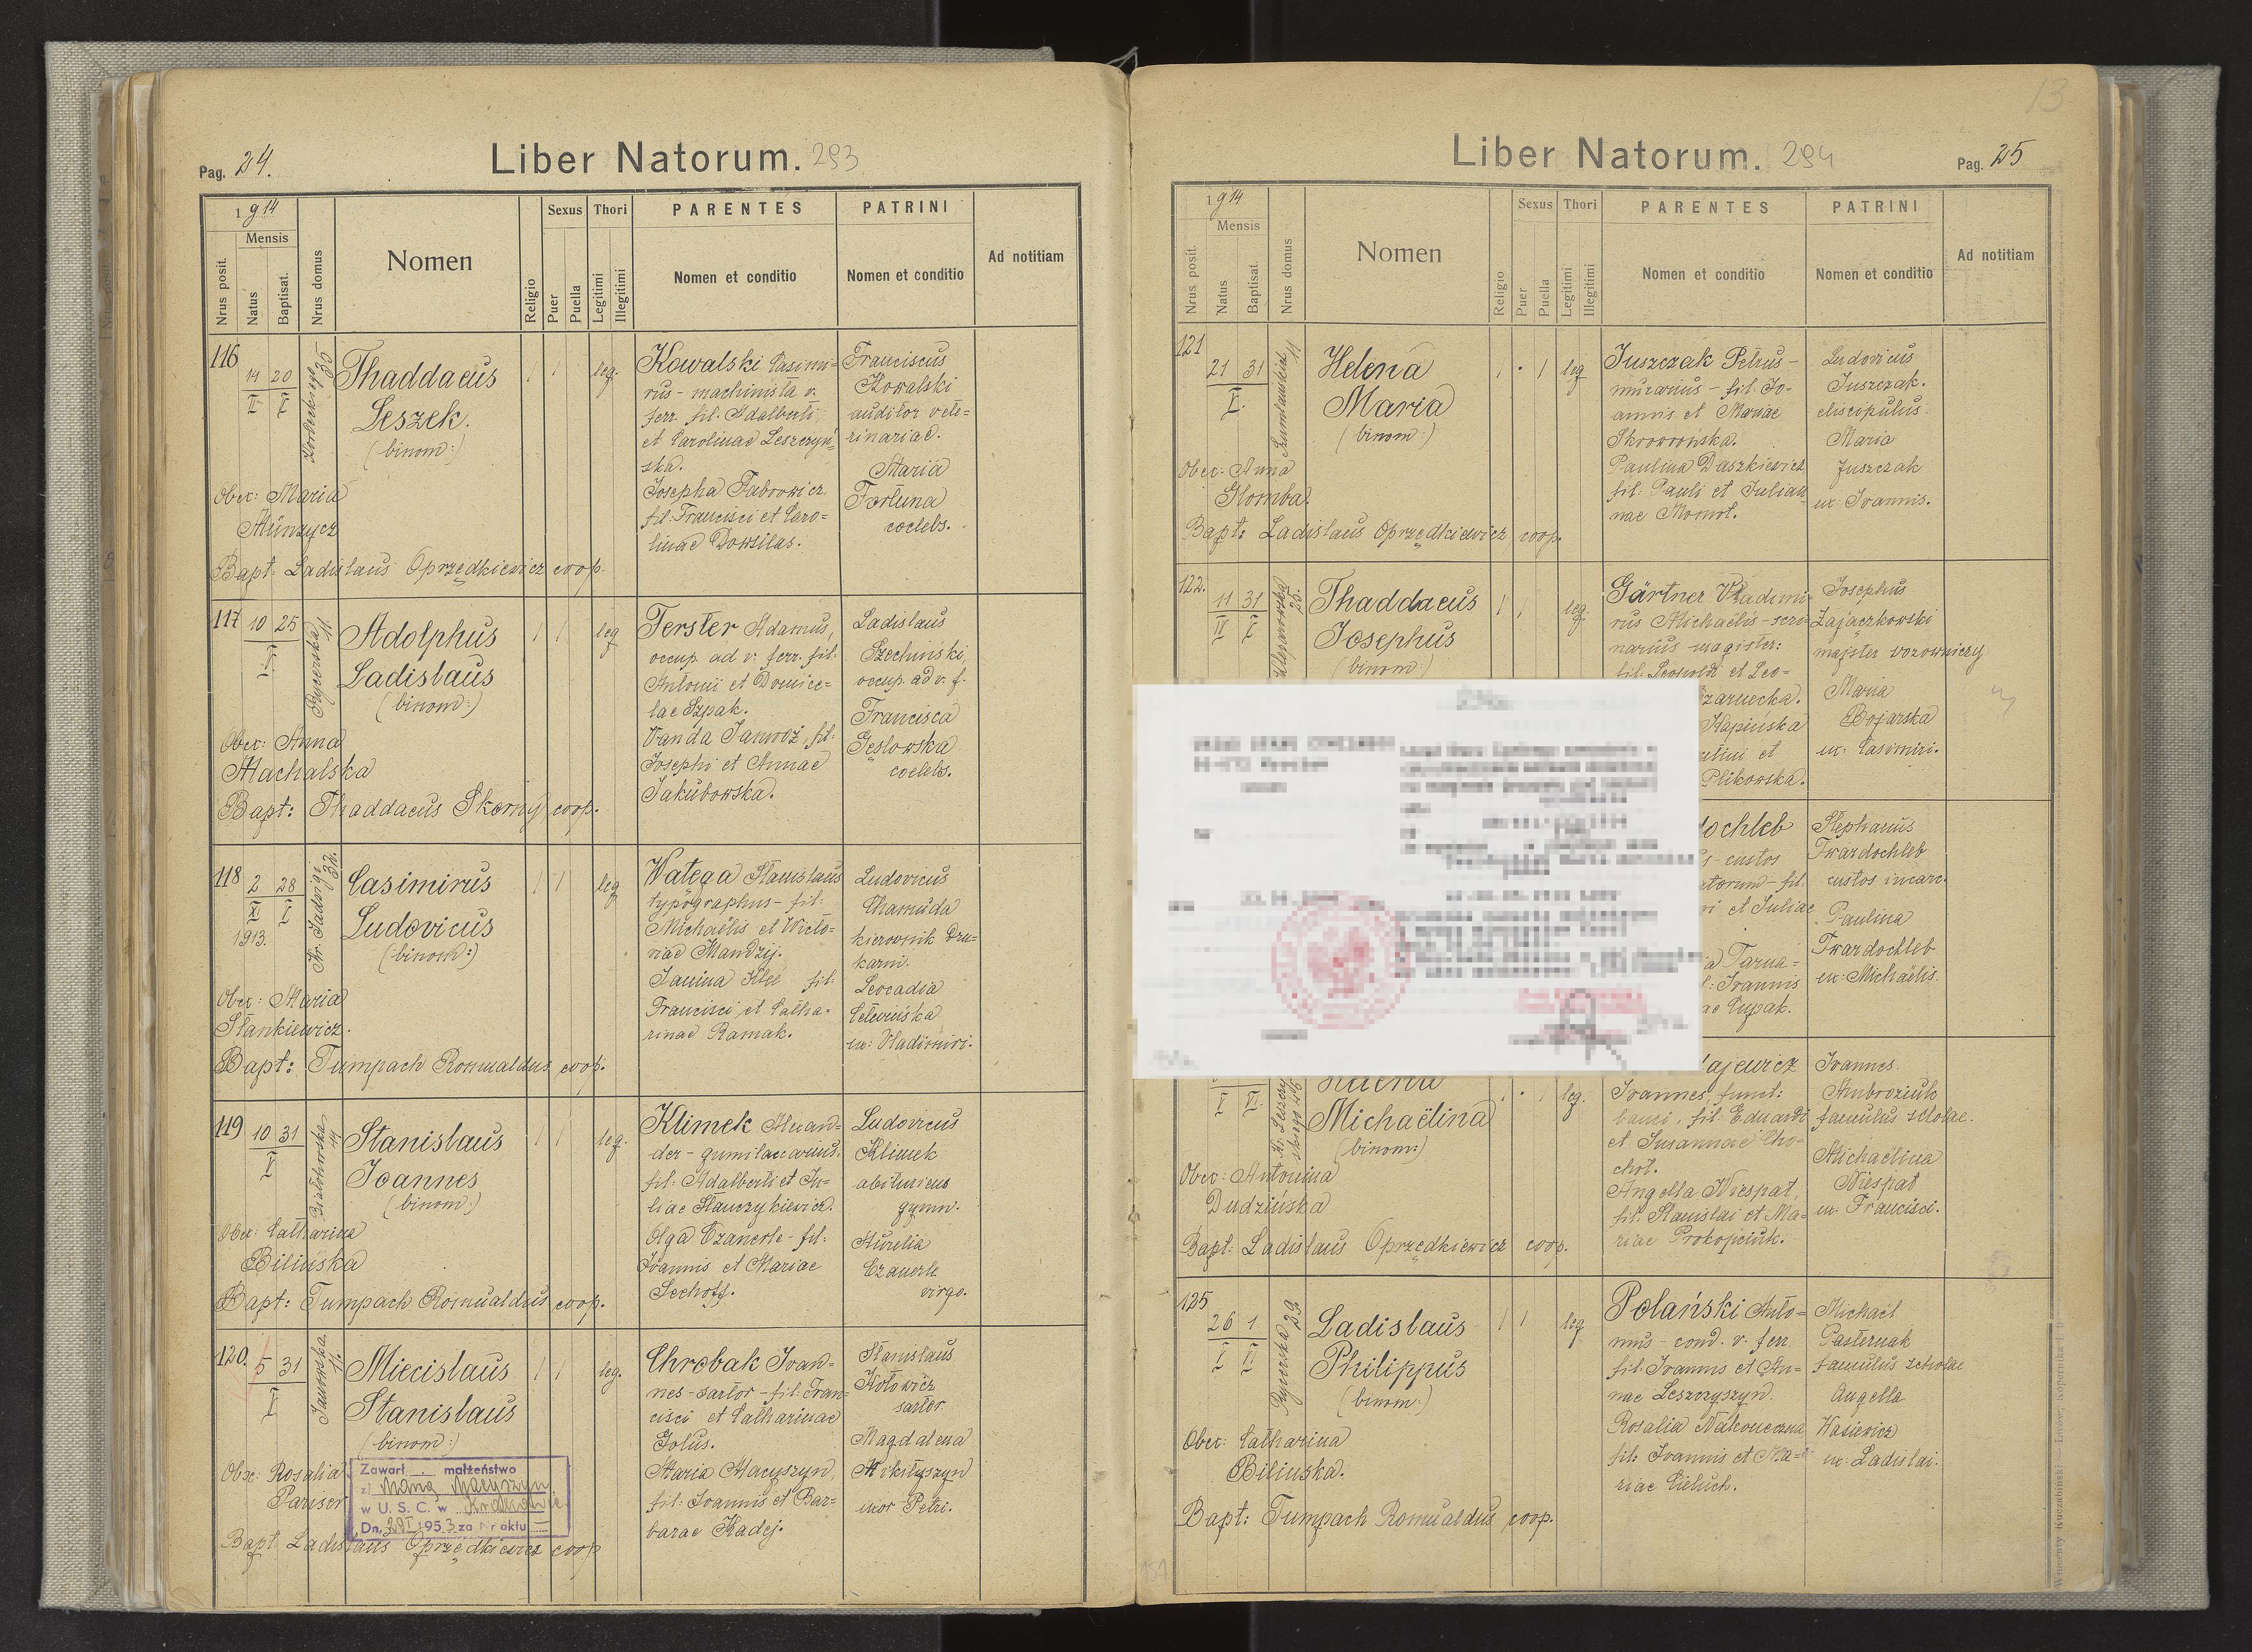 Pag. 24.
Liber Natorum. 293
1914
Mensis
Nrus posit.
Natus
Baptisat.
Nrus domus
Nomen
Religio
Sexus
Puer
Puella
Thori
Legitimi
Illegitimi
PARENTES
Nomen et conditio
PATRINI
Nomen et conditio
Ad notitiam
116
14 20
35
Thaddaeus
Leszek.
(binom:)
1 1 leg.
Obec: Maria
Münzycz
Bapt: Ladislaus Oprzędkiewicz coop.
Kowalski Casimi-
rus - machinista v.
ferr. fil. Adalberti
et Carolinae Leszczyń-
ska.
Josepha
fil: Francisci et Caro-
linae Dowsilas.
Franciscus
Kowalski
auditor vete-
rinariae.
Maria
Fortuna
coelebs.
117
10 25
I
Rycerska 11.
Adolphus
Ladislaus
(binom:)
1 1 leg
Obec: Anna
Machalska
Bapt: Thaddaeus Skorny coop.
Ferster Adamus,
occup. ad v. ferr. fil.
Antonii et Domice-
lae Szpak.
Vanda Janwoż, fil.
Josephi et Annae
Jakubowska.
Ladislaus
Szechiński,
occup. ad v. f.
Francisca
Gęslowska
coelebs.
118
2 28
XI I
1913.
Kr. Jadwigi 32.
Casimirus
Ludovicus
(binom:)
1 1 leg
Obec: Maria
Stankiewicz.
Bapt: Tumpach Romualdus coop.
Watega Stanislaus
typographus - fil:
Michaëlis et Victo-
riae Mandzij.
Janina Klee fil:
Francisci et Catha-
rinae Ramak.
Ludovicus
Chamuda
kierownik Dru-
karni.
Leocadia
ux: Vladimiri.
119
10 31
I
Białohorska 44
Stanislaus
Joannes
(binom:)
1 1 leg.
Obec: Catharina
Bilińska
Bapt: Tumpach Romualdus coop.
Klimek Alexan-
der -
fil: Adalberti et Ju-
liae Stauczykiewicz.
Olga Czanerle - fil:
Joannis et Mariae
Lechoff.
Ludovicus
Klimek
abituricus
gymn.
Aurelia
Czauerle
virgo.
120.
5 31
I
Janowska. 11.
Miecislaus
Stanislaus
(binom:)
1 1 leg.
Obec: Rosalia
Pariser
Zawarł małżeństwo
z
w U. S. C. w Krakowie
Dn. 1953 za Nr aktu
Bapt Ladislaus Oprzędkiewicz coop
Chrobak Joan-
nes - sartor - fil: Fran-
cisci et Catharinae
Golus.
Maria Macyszyn,
fil: Joannis et Bar-
barae Kadej.
Stanislaus
Hołowicz
sartor
Magdalena
Mikityszyn
uxor Petri.
13
Liber Natorum. 294
Pag. 25
1914
Mensis
Nrus posit.
Natus
Baptisat.
Nrus domus
Nomen
Religio
Sexus
Puer
Puella
Thori
Legitimi
Illegitimi
PARENTES
Nomen et conditio
PATRINI
Nomen et conditio
Ad notitiam
121
21 31
I.
11
Helena
Maria
(binom:)
1 • 1 leg
Obec: Anna
Glomba.
Bapt: Ladislaus Oprzędkiewicz coop.
Juszczak Petrus -
murarius - fil. Jo-
annis et Mariae
Skworońska.
Paulina Daszkiewicz
fil: Pauli et Julian-
nae Momot.
Ludovicus
Juszczak.
discipulus.
Maria
Juszczak
ux: Joannis.
122.
11 31
Thaddaeus
Josephus
(binom:)
1 1 leg.
Gärtner Vladimi-
rus Michaëlis - scri-
narius magister:
fil. Leopoldi et Leo-
Czarnecka.
Kapińska
et
Plikowska.
Josephus
Zajączkowski
majster wozowniczy
Maria
Bojarska
ux: Casimiri.
ochleb
- custos
- fil.
et Juliae
Tarna-
Joannis
ae Cupak.
Stephanus
Twardochleb
custos incarc.
Paulina
Twardochleb
ux: Michaëlis.
I VI.
Michaëlina
(binom:)
1 • 1 leg.
Obec: Antonina
Dudzińska
Bapt: Ladislaus Oprzędkiewicz coop.
ajewicz
Joannes, funct:
banci, fil. Eduardi
et Susannae Cho-
chot.
Angella Niespat,
fil. Stanislai et Ma-
riae Prokopciuk.
Joannes
Ambroziuk
famulus scholae.
Michaëlina
Niespat
ux: Francisci.
125
26 1
I II
Rycerska 29.
Ladislaus
Philippus
(binom:)
1 1 leg
Obec: Catharina
Biliuska.
Bapt: Tumpach Romualdus coop.
Polański Anto-
nius - cond. v. ferr.
fil. Joannis et An-
nae Leszczyszyn.
Rosalia Nakoneczna
fil: Joannis et Ma-
riae Cieluch.
Michaël
Pasternak
famulus scholae
Angella
Wasiewicz
ux: Ladislai.